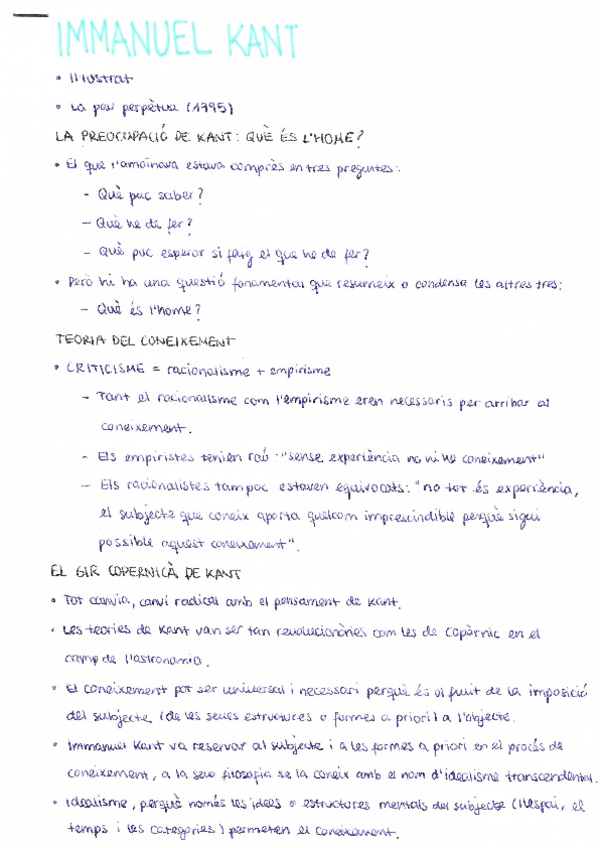 IMMANUEL KANT
• Il·lustrat
• La pau perpètua (1795)
LA PREOCUPACIÓ DE KANT: QUÈ ÉS L'HOME?
• El que l'amoïnava estava comprès en tres preguntes:
- Què puc saber?
- Què he de fer?
- Què puc esperar si faig el que he de fer?
• Però hi ha una qüestió fonamental que resumeix o condensa les altres tres:
- Què és l'home?
TEORIA DEL CONEIXEMENT
• CRITICISME = racionalisme + empirisme
- Tant el racionalisme com l'empirisme eren necessaris per arribar al
coneixement.
- Els empiristes tenien raó: "sense experiència no hi ha coneixement"
- Els racionalistes tampoc estaven equivocats: "no tot és experiència,
el subjecte que coneix aporta quelcom imprescindible perquè sigui
possible aquest coneixement".
EL GIR COPERNICÀ DE KANT
• Tot canvia, canvi radical amb el pensament de Kant.
• Les teories de Kant van ser tan revolucionàries com les de Copèrnic en el
camp de l'astronomia.
• El coneixement pot ser universal i necessari perquè és el fruit de la imposició
del subjecte (de les seues estructures o formes a priori) a l'objecte.
• Immanuel Kant va reservar al subjecte i a les formes a priori en el procés de
coneixement, a la seva filosofia se la coneix amb el nom d'idealisme transcendental.
• Idealisme, perquè només les idees o estructures mentals del subjecte (l'espai, el
temps i les categories) permeten el coneixement.